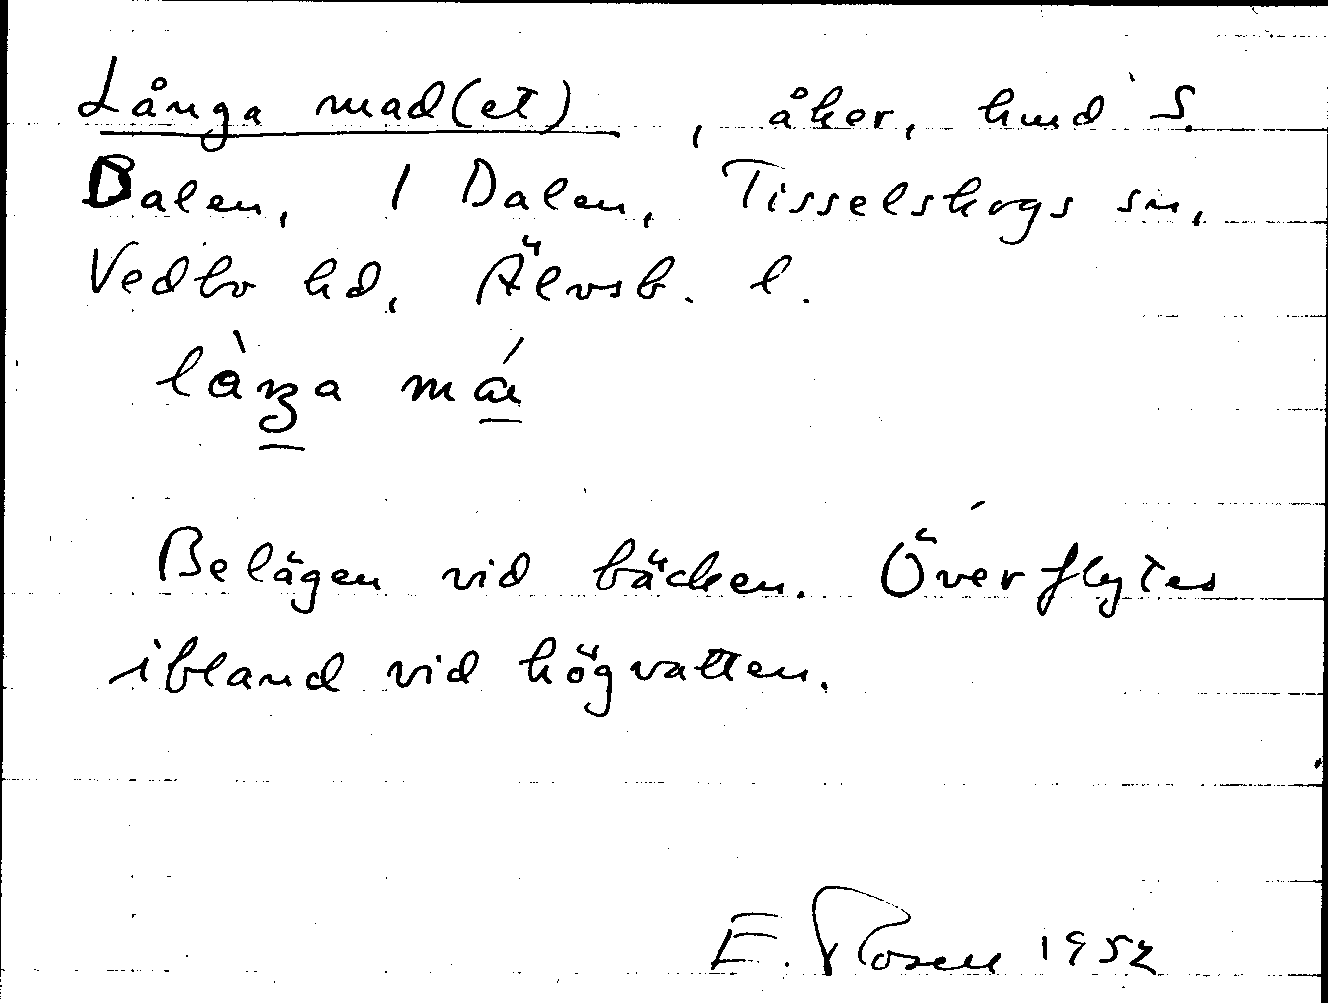 Långa mad(et), åker, hmd S.
Dalen, 1 Dalen, Tisselskogs sn,
Vedbo hd, Älvsb. l.
Belägen vid bäcken. Överflytes
ibland vid högvatten.
E. Rosell 1952